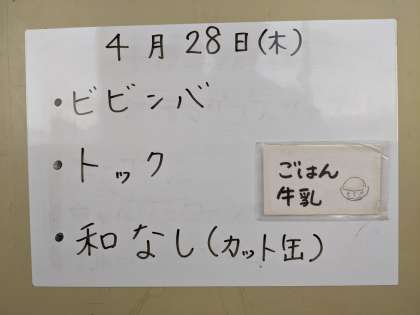 4月28日(木)
・ビビンバ
・トック
ごはん
牛乳
・和なし(カット缶)